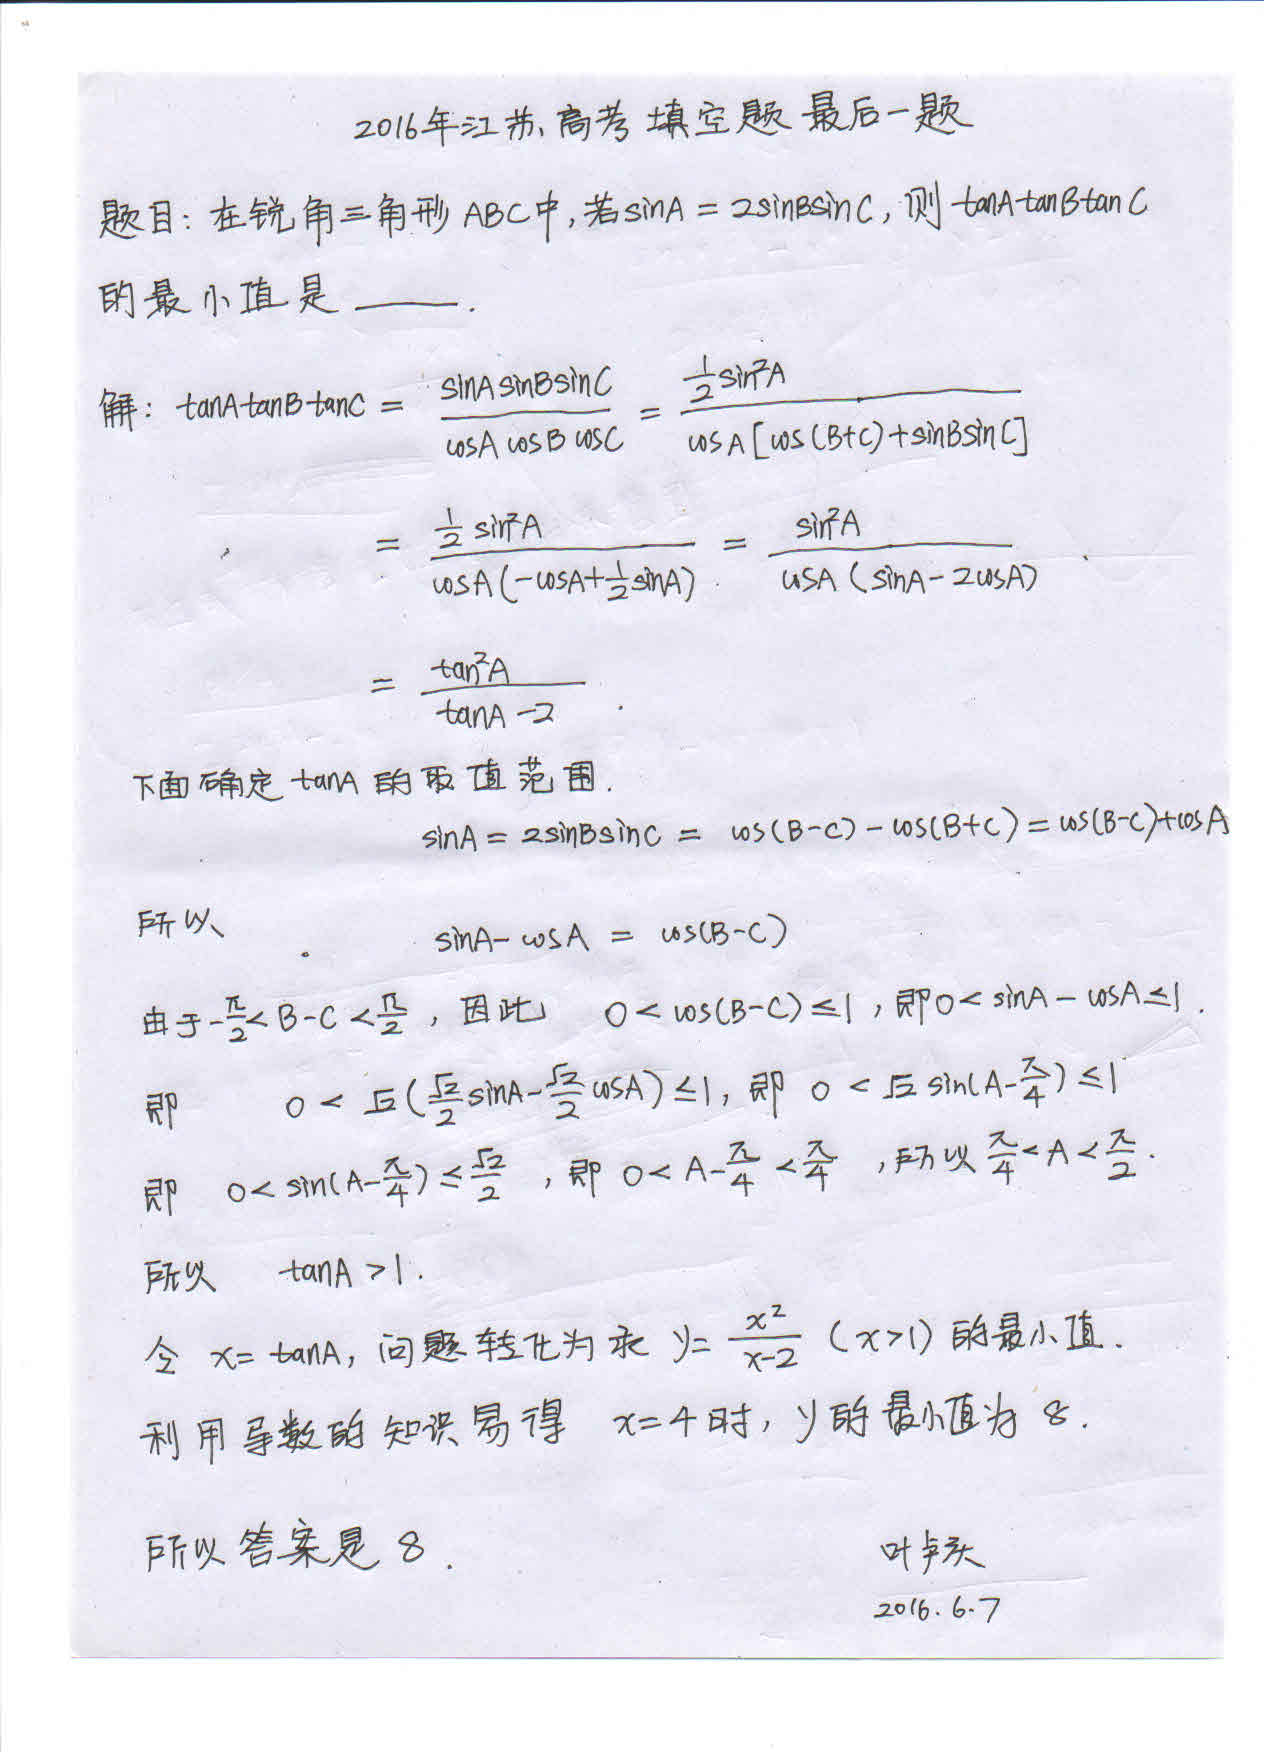 2016年江苏高考填空题最后一题
题目:在锐角三角形ABC中,若sinA=2sinBsinC,则tanAtanBtanC
的最小值是 ____.
解:tanAtanBtanC = \frac{sinAsinBsinC}{cosAcosBcosC} = \frac{\frac{1}{2}sin²A}{cosA[cos(B+C)+sinBsinC]}
= \frac{\frac{1}{2}sin²A}{cosA(-cosA+\frac{1}{2}sinA)} = \frac{sin²A}{cosA(sinA-2cosA)}
= \frac{tan²A}{tanA-2}.
下面确定tanA的取值范围.
sinA=2sinBsinC = cos(B-C)-cos(B+C)=cos(B-C)+cosA
所以 sinA-cosA = cos(B-C)
由于-\frac{π}{2}<B-C<\frac{π}{2},因此 0<cos(B-C)≤1,即0<sinA-cosA≤1.
即 0<√2(\frac{√2}{2}sinA-\frac{√2}{2}cosA)≤1,即 0<√2sin(A-\frac{π}{4})≤1
即 0<sin(A-\frac{π}{4})≤\frac{√2}{2},即 0<A-\frac{π}{4}<\frac{π}{4},所以\frac{π}{4}<A<\frac{π}{2}.
所以 tanA>1.
令 x=tanA,问题转化为求 y=\frac{x²}{x-2} (x>1)的最小值.
利用导数的知识易得 x=4时,y的最小值为8.
所以答案是8.
叶卢庆
2016.6.7